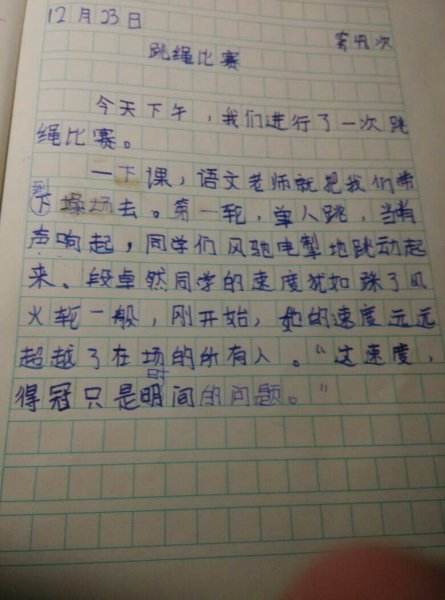 12月23日
第9次
跳绳比赛
今天下午，我们进行了一次跳
绳比赛。
一下课，语文老师就把我们带
到
下操场去。第一轮，单人跳，当有
声响起，同学们风驰电掣地跳动起
来。段卓然同学的速度犹如踩了风
火轮一般，刚开始，她的速度远远
超越了在场的所有人。“这速度，
时
得冠只是明间的问题。”